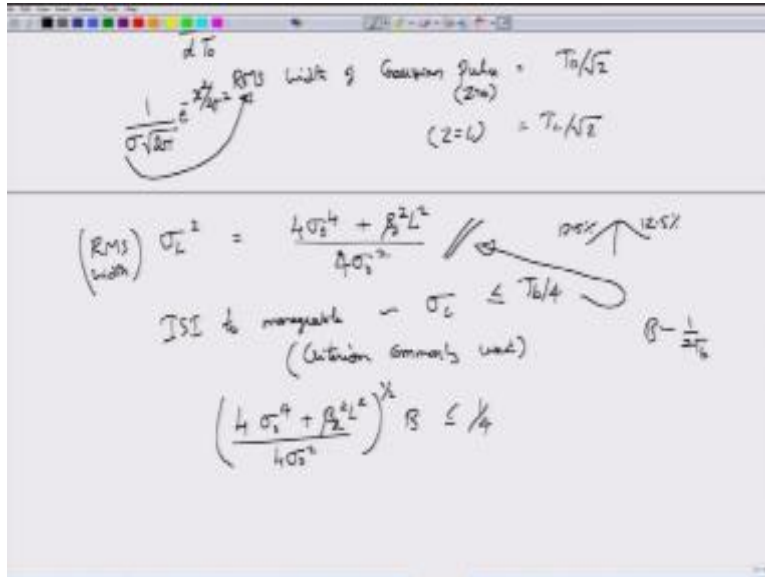 d T₀
1/(σ√2π) e^(-x²/2σ²) RMS width of Gaussian Pulse = T₀/√2
(z=0)
(z=L) = T_L/√2
(RMS width) σ_L² = (4σ₀⁴ + β₂²L²)/(4σ₀²)
12.5% 12.5%
ISI to manageable – σ_L ≤ T_b/4
(Criterion commonly used)
B – 1/2T_b
((4σ₀⁴ + β₂²L²)/(4σ₀²))^(1/2) B ≤ 1/4